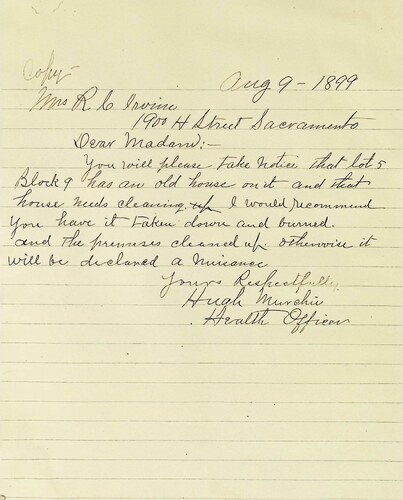 Copy-
Aug 9 - 1899
Mrs R C Irvine
1900 H Street Sacramento
Dear Madam:-
You will please take Notice that lot 5
Block 9 has an old house on it and that
house needs cleaning up I would recommend
You have it taken down and burned.
and the premises cleaned up otherwise it
will be declared a Nuisance
Yours Respectfully
Hugh Murchie
Health Officer